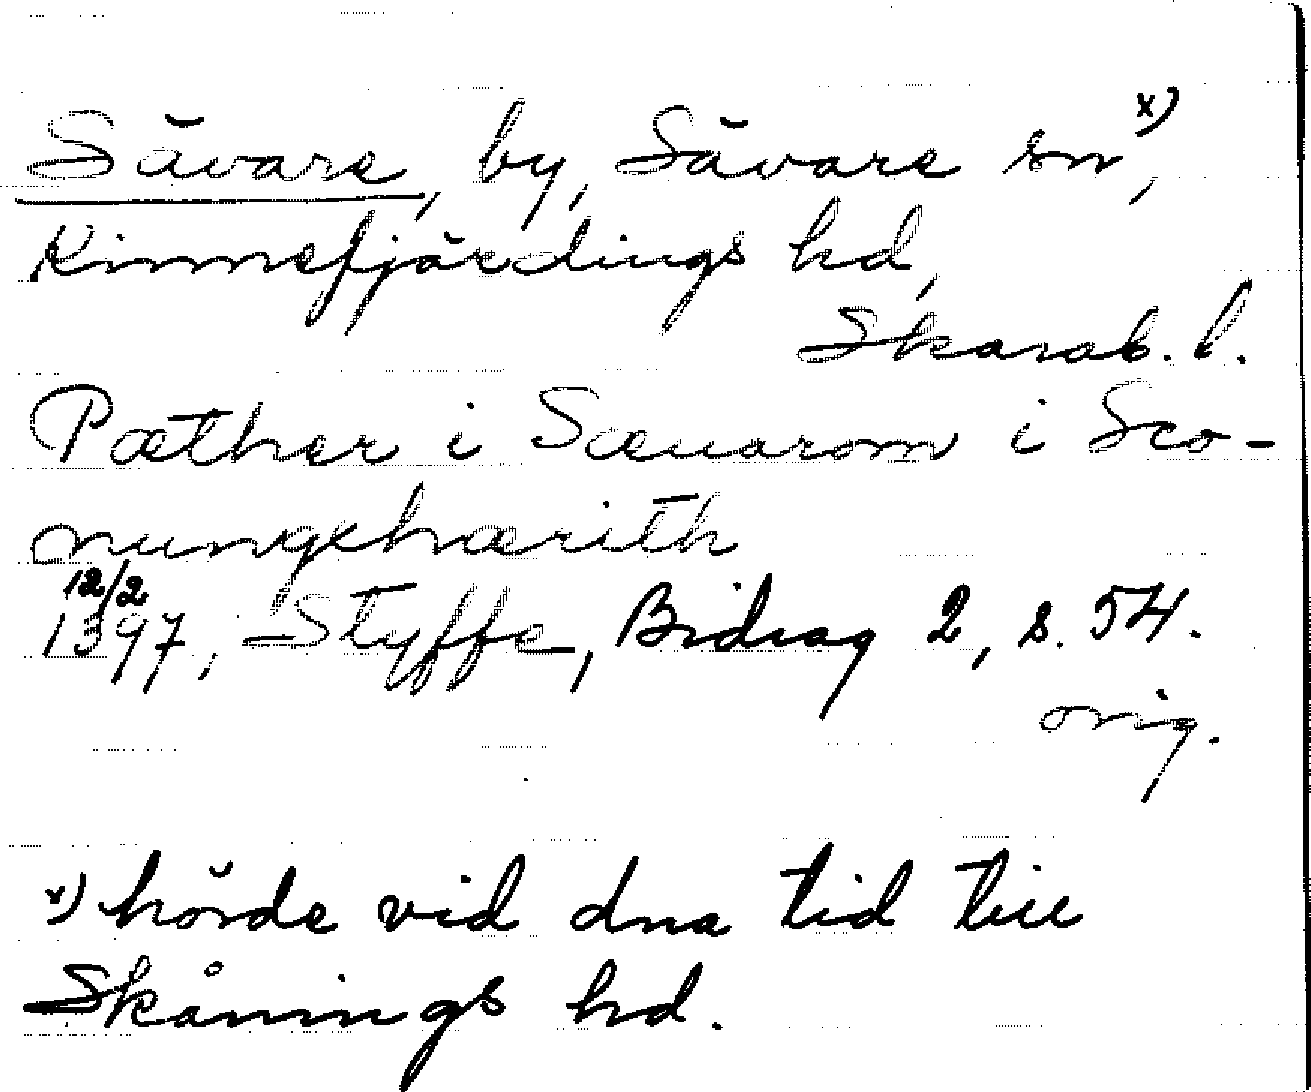 Sävare, by, Sävare sn x),
Kinnefjärdings hd,
Skarab. l.
Pæther i Sæuarom i Sco-
nungxhærith
12/2
1397, Styffe, Bidrag 2, s. 54.
orig.
x) hörde vid dna tid till
Skånings hd.